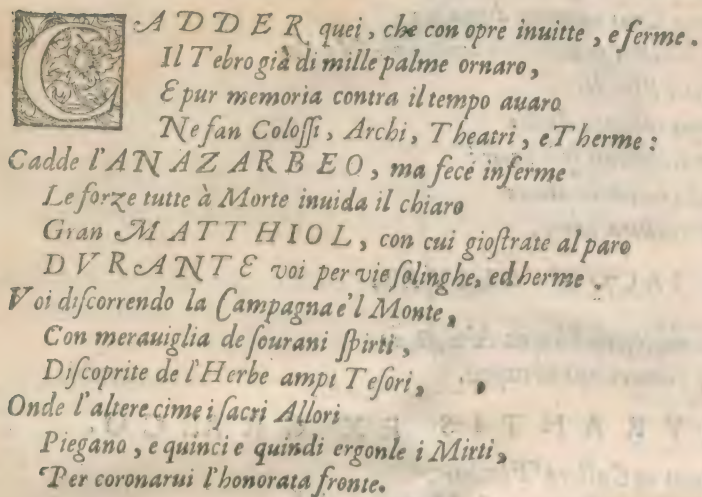 CADDER quei, che con opre inuitte, e ferme.
Il Tebro già di mille palme ornaro,
E pur memoria contra il tempo auaro
Ne fan Colossi, Archi, Theatri, e Therme:
Cadde l'ANAZARBEO, ma fece inferme
Le forze tutte à Morte inuida il chiaro
Gran MATTHIOL, con cui giostrate al paro
DVRANTE voi per vie solinghe, ed herme.
Voi discorrendo la Campagna e'l Monte,
Con merauiglia de sourani spirti,
Discoprite de l'Herbe ampi Tesori,
Onde l'altere cime i sacri Allori
Piegano, e quinci e quindi ergonle i Mirti,
Per coronarui l'honorata fronte.